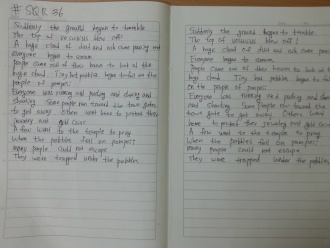 # SQR 36
Suddenly the ground began to tremble
The top of Vesuvius blew off!
A huge cloud of dust and ash came pouring out
Everyone began to scream.
people came out of their homes to look at the
huge cloud. Tiny hot pebbles began to fall on the
people of pompeii.
Everyone was running and pushing and shoving and
shouting. Some people ran toward the town gates
to get away. Others went home to protect their
jewelry and gold coins.
A few went to the temple to pray.
When the pebbles fell on pompeii
many people could not escape.
They were trapped under the pebbles.
Suddenly the ground began to tremble.
The top of Vesuvius blew off!
A huge cloud of dust and ash came pouring
Everyone began to scream.
people came out of their homes to look at the
huge cloud. Tiny hot pebbles began to fall
on the people of pompeii.
Everyone was running and pushing and shoving
and shouting. Some people ran toward the
town gate to get away. Others went
home to protect their jewelry and gold coins
A few went to the temple to pray.
When the pebbles fell on pompeii
many people could not escape.
They were trapped under the pebbles.